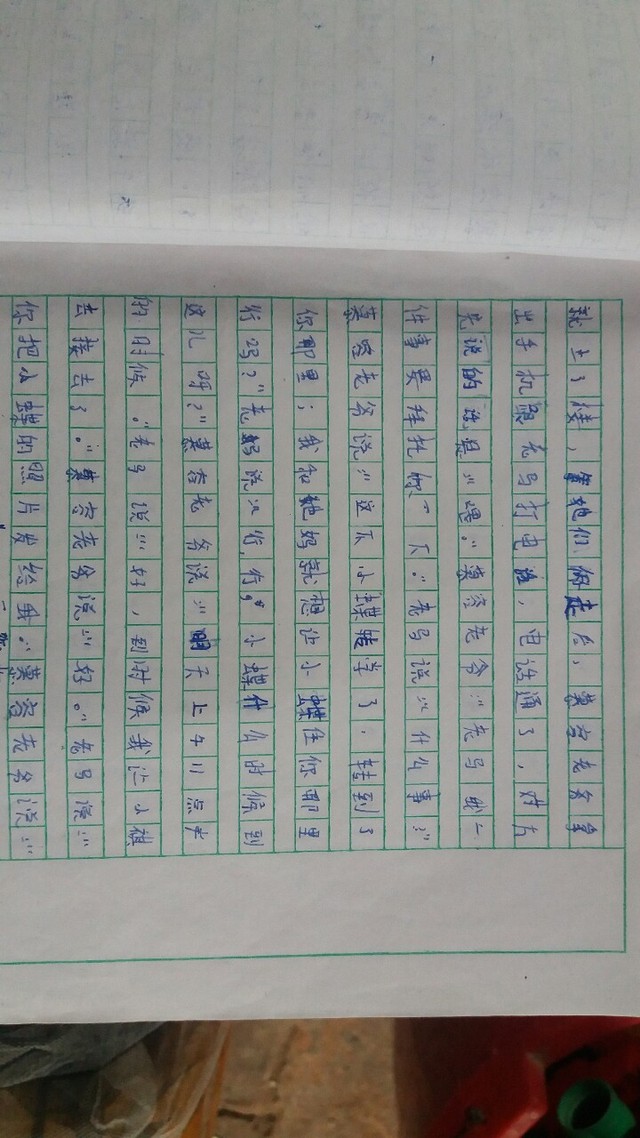 就上了楼，等她们俩走后，慕容老爷拿
出手机跟老马打电话，电话通了，对方
先说的话是：“喂。”慕容老爷：“老马我一
件事要拜托你一下。”老马说：“什么事？”
慕容老爷说：“这不小蝶转学了．转到了
你那里；我和她妈就想让小蝶住你那里
行吗？”老妈说：“行，行，”小蝶什么时候到
这儿啊？”慕容老爷说：“明天上午11点多
的时候。”老马说：“好，到时候我让小祺
去接去了。”慕容老爷说：“好。”老马说：“
你把小蝶的照片发给我。”慕容老爷说：“